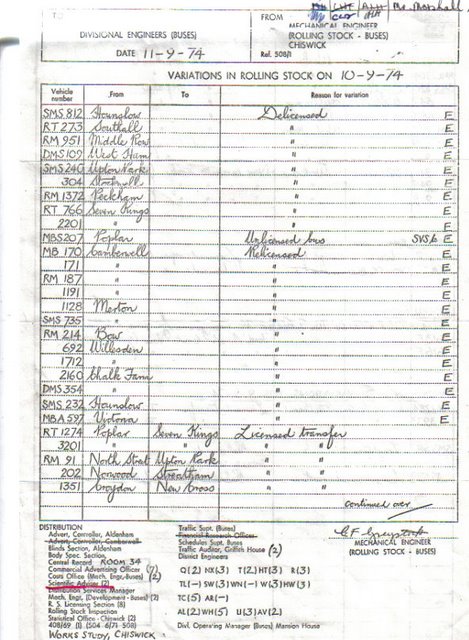 Mr. Marshall
TO
DIVISIONAL ENGINEERS (BUSES)
DATE 11-9-74
FROM
MECHANICAL ENGINEER
(ROLLING STOCK - BUSES)
CHISWICK
Ref. 508/1
VARIATIONS IN ROLLING STOCK ON 10-9-74
Vehicle number From To Reason for variation
SMS 812 Hounslow Delicensed E
RT 273 Southall " E
RM 951 Middle Row " E
DMS 109 West Ham " E
SMS 240 Upton Park " E
304 Stockwell " E
RM 1372 Peckham " E
RT 766 Seven Kings " E
2201 " " E
MBS 207 Poplar Unlicensed bus SVS/b E
MB 170 Camberwell Relicensed E
171 " " E
RM 187 " " E
1191 " " E
1128 Merton " E
SMS 735 " " E
RM 214 Bow " E
692 Willesden " E
1712 " " E
2160 Chalk Farm " E
DMS 354 " " E
SMS 232 Hounslow " E
MBA 597 Victoria " E
RT 1274 Poplar Seven Kings Licensed transfer
3201 " " " "
RM 91 North Street Upton Park " "
202 Norwood Streatham " "
1351 Croydon New Cross " "
continued over
DISTRIBUTION
Advert, Controller, Aldenham
Advert, Controller, Camberwell
Blinds Section, Aldenham
Body Spec. Section,
Central Record ROOM 34
Commercial Advertising Officer (7)
Costs Office (Mech. Engr.-Buses) (2)
Scientific Adviser (2)
Distribution Services Manager
Mech. Engr. (Development - Buses) (2)
R. S. Licensing Section (8)
Rolling Stock Inspection
Statistical Office - Chiswick (2)
408/69 (1) (504 6/71 508)
WORKS STUDY, CHISWICK
Traffic Supt. (Buses)
Financial Research Officer
Schedules Supt. Buses
Traffic Auditor, Griffith House (2)
District Engineers
Q(2) NX(3) T(2) HT(3) R(3)
TL(-) SW(3) WN(-) W(3) HW(3)
TC(5) AR(-)
AL(2) WH(5) U(3) AV(2)
Divl. Operating Manager (Buses) Mansion House
MECHANICAL ENGINEER
(ROLLING STOCK - BUSES)